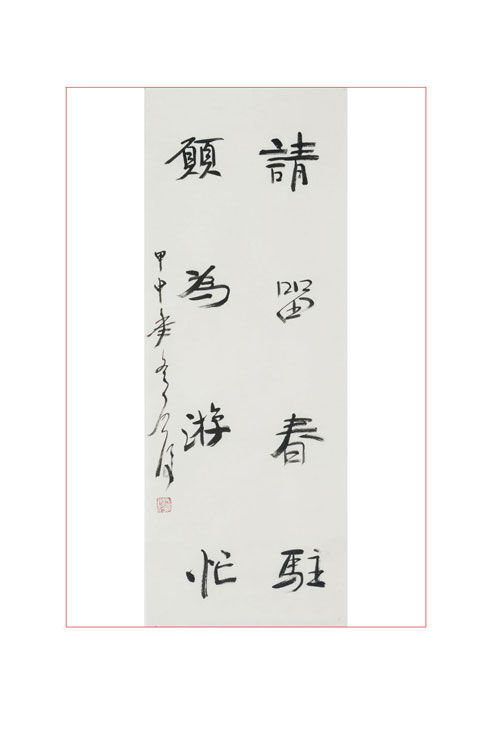 請留春駐
願為游忙
甲申年冬